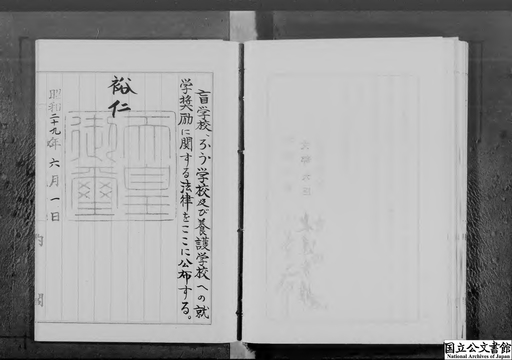 盲学校、ろう学校及び養護学校への就
学奨励に関する法律をここに公布する。
裕仁
天皇
御璽
昭和二十九年六月一日
国立公文書館
National Archives of Japan